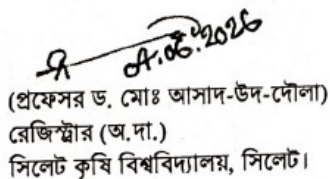 (প্রফেসর ড. মোঃ আসাদ-উদ-দৌলা)
রেজিস্ট্রার (অ.দা.)
সিলেট কৃষি বিশ্ববিদ্যালয়, সিলেট।